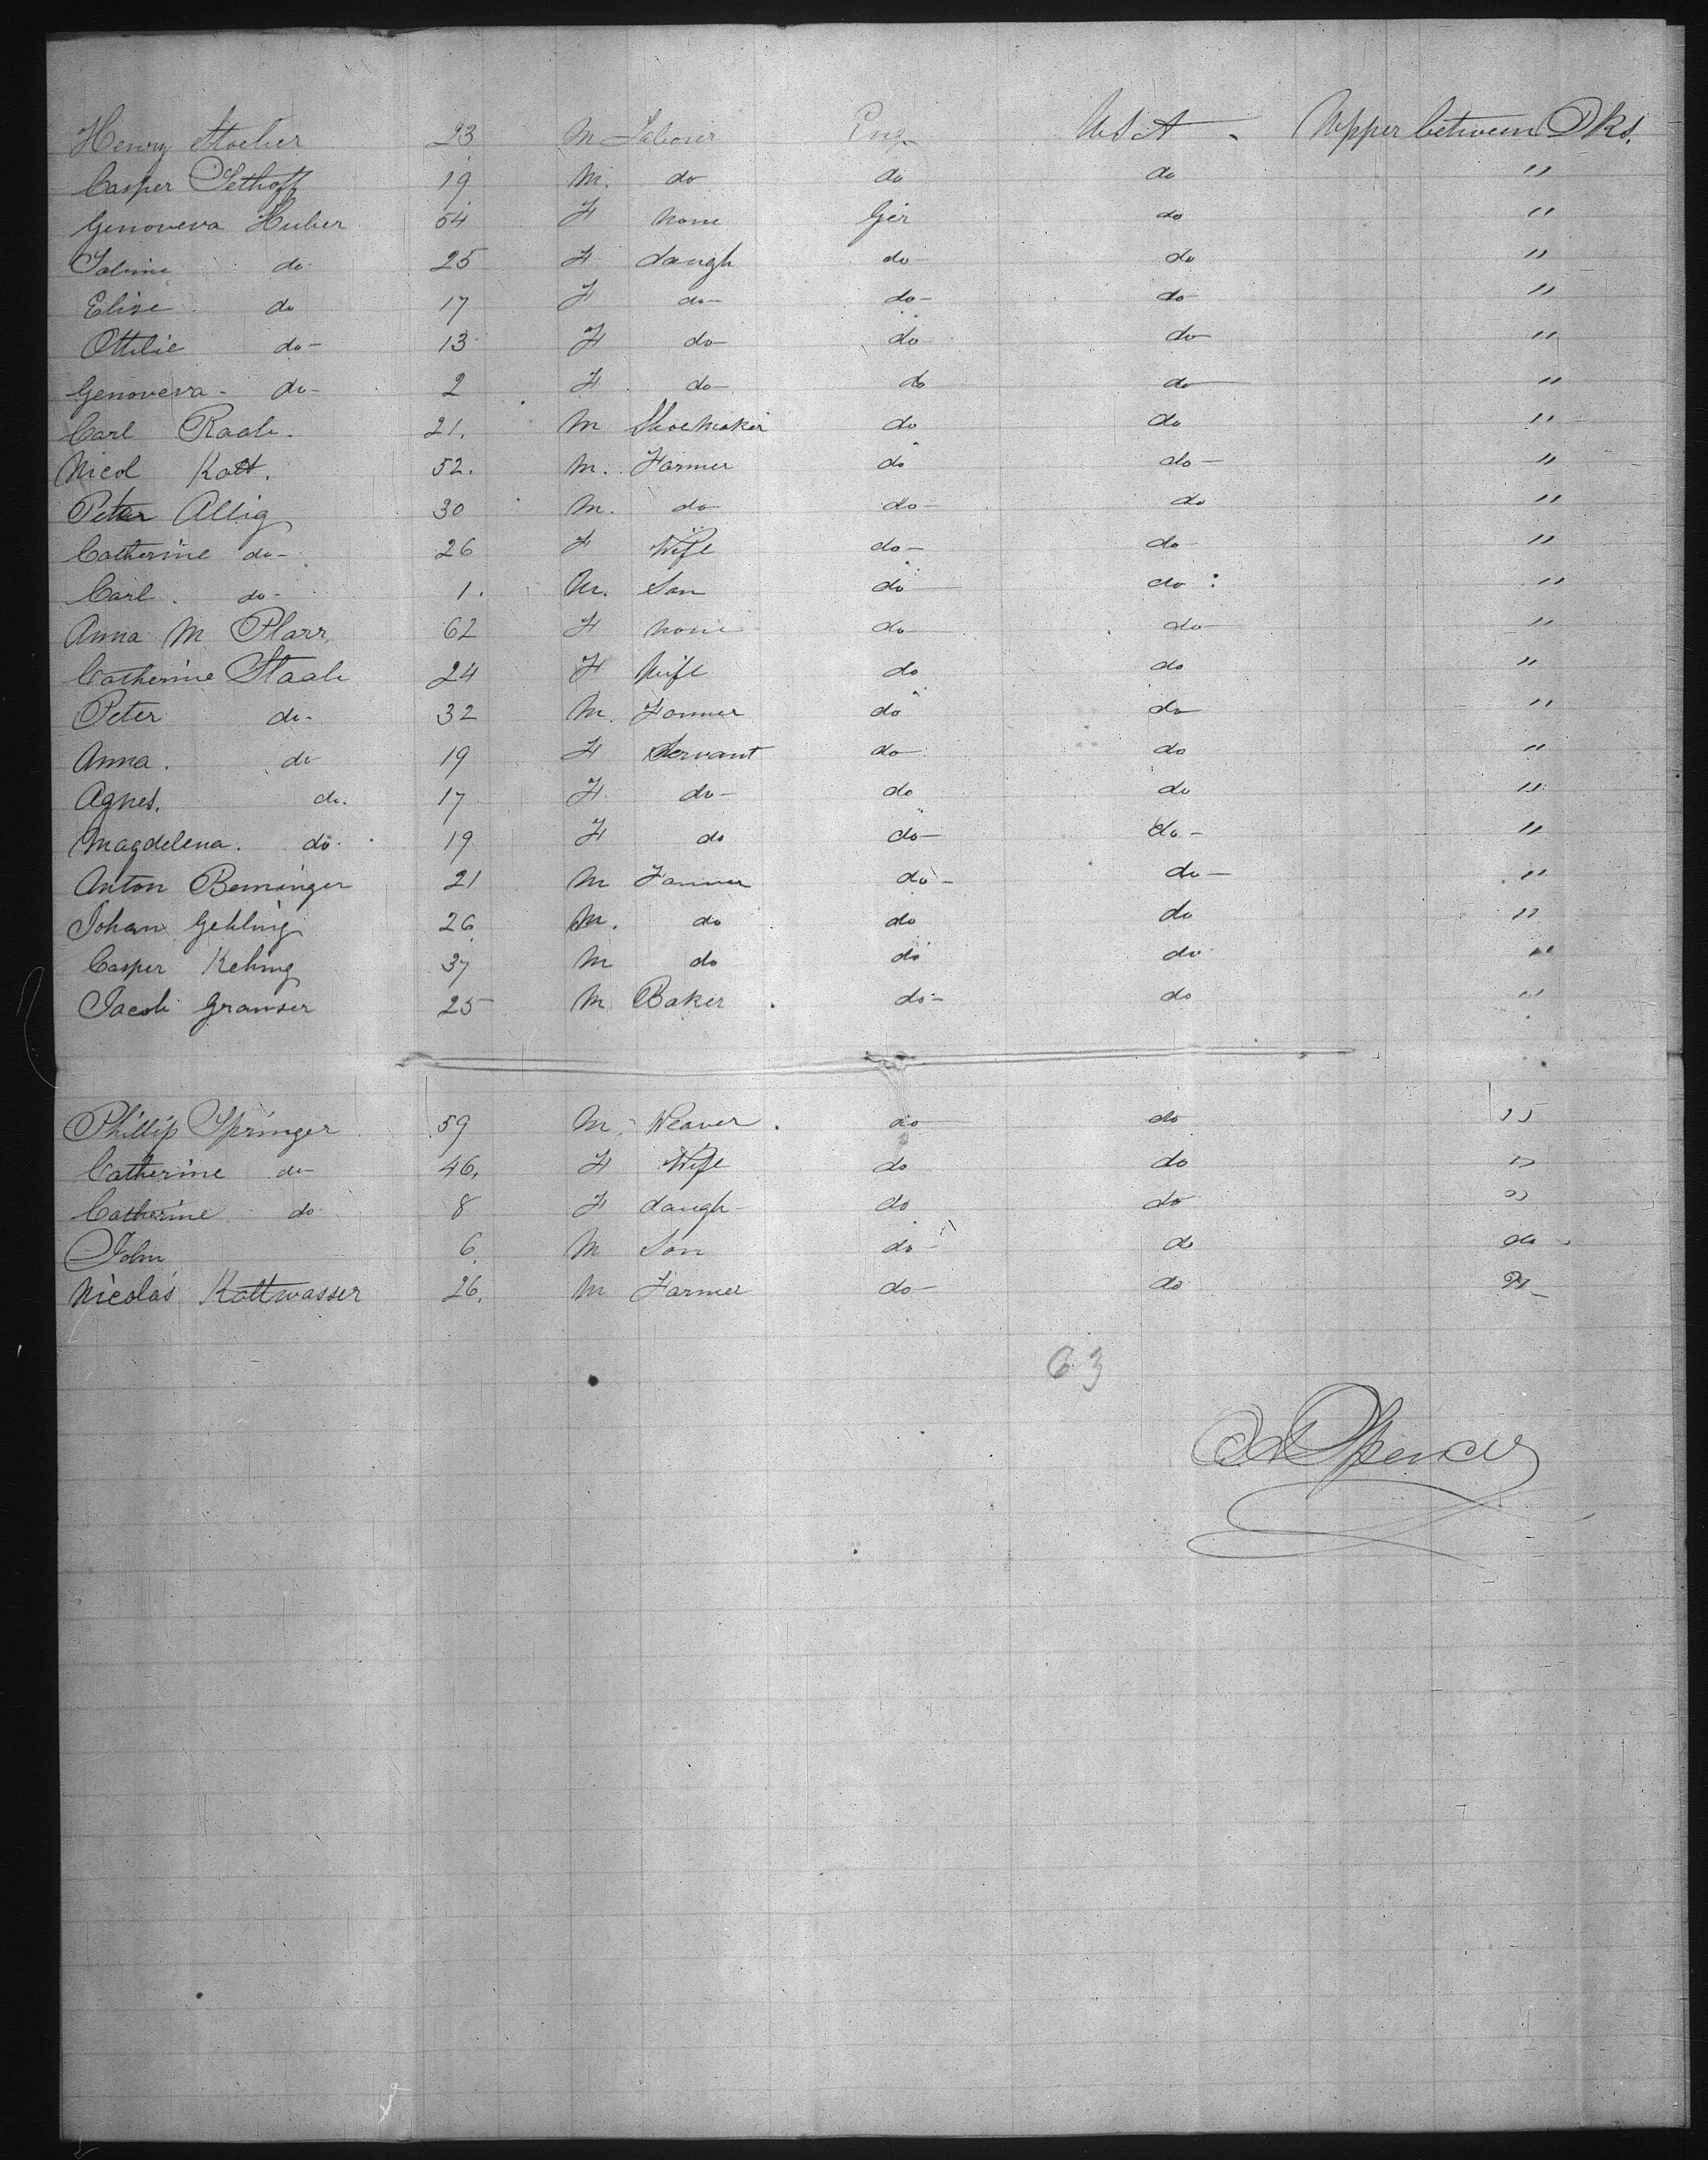 Henry Stoeber 23 M Labour Eng USA Upper between Dks.
Casper Sethoff 19 M. do do do "
Genoveva Huber 54 F none Ger do "
Sabine do 25 F daugh do do "
Elise do 17 F do do do "
Ottilie do 13 F do do do "
Genoveva do 2 F do do do "
Carl Raab. 21. M Shoemaker do do "
Nicol Kott. 52. M. Farmer do do "
Peter Allig 30 M. do do do "
Catherine do 26 F Wife do do "
Carl. do 1. M. Son do do "
Anna M Plarr 62 F none do do "
Catherine Staab 24 F Wife do do "
Peter do 32 M. Farmer do do "
Anna. do 19 F Servant do do "
Agnes. do. 17 F. do do do "
Magdelena. do. 19 F do do do "
Anton Berninger 21 M Farmer do do "
Johan Gehling 26 M. do do do "
Casper Kehing 37 M do do do "
Jacob 25 M Baker do do "
Phillip Springer 59 M. Weaver. do do "
Catherine do 46. F Wife do do "
Catherine do 8 F daugh do do "
John 6 M Son do do do
Nicolas Kottwasser 26. M Farmer do do "
63
Spencer